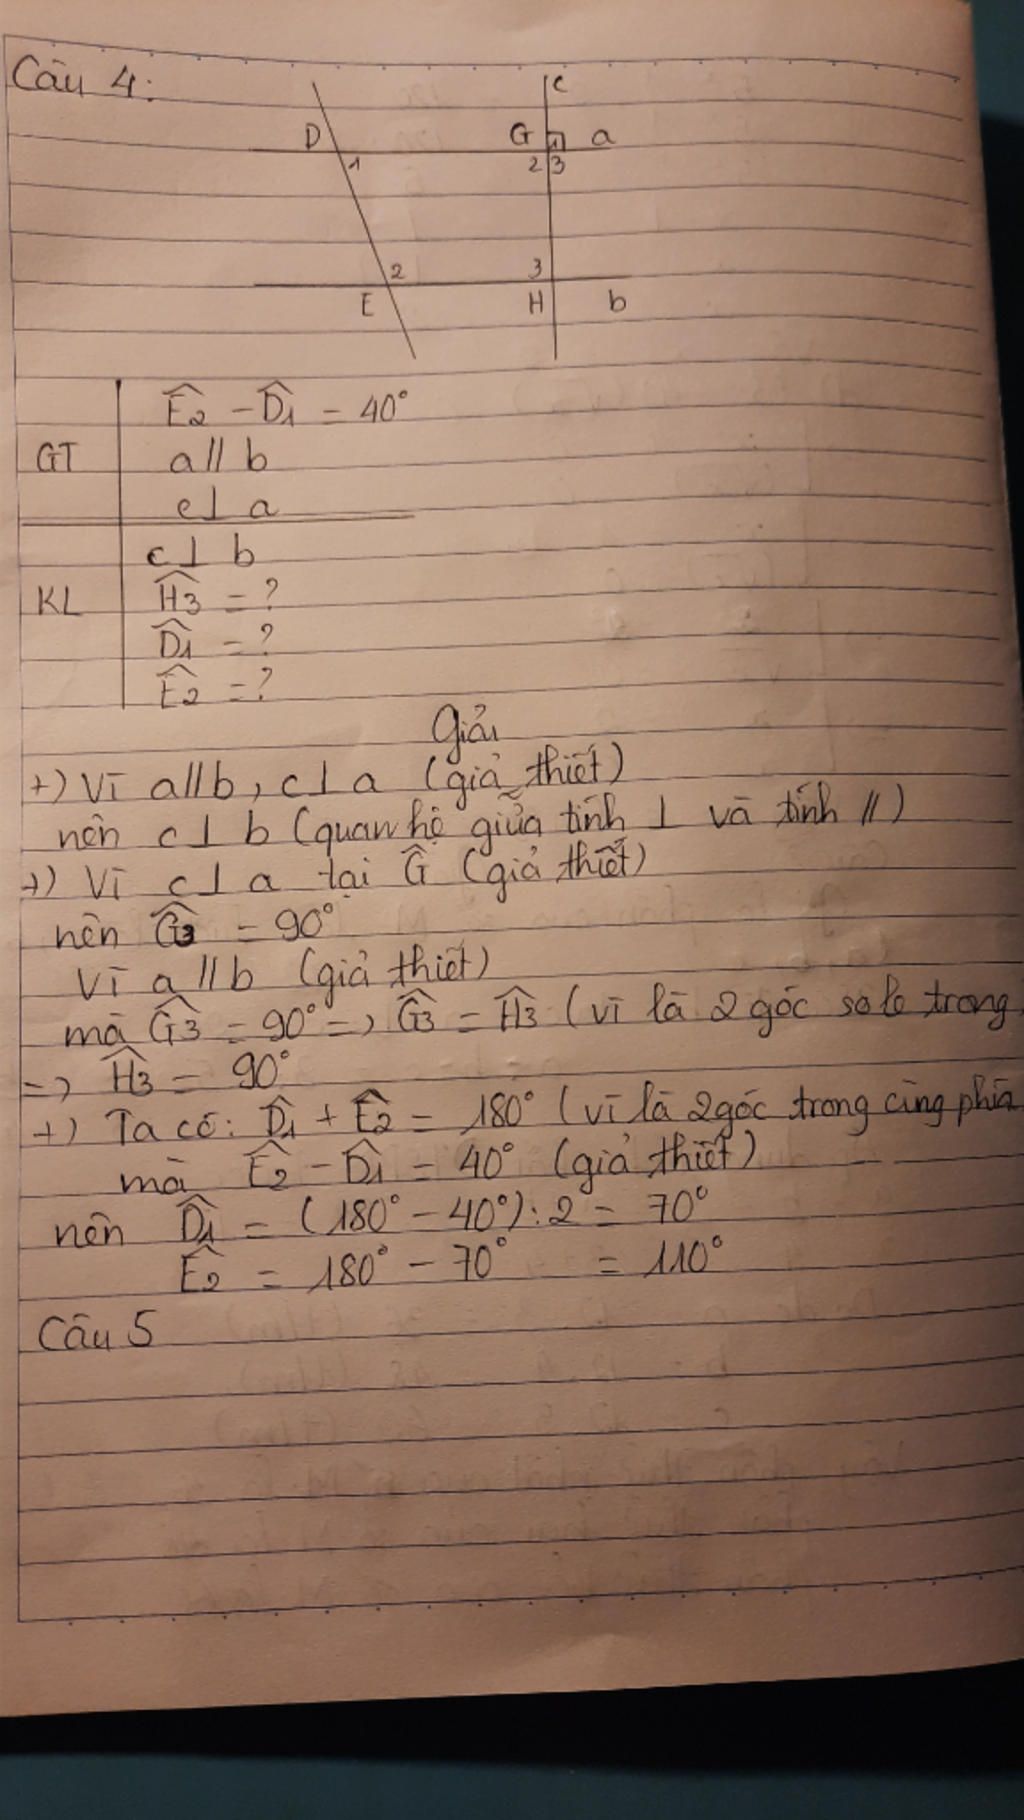 Câu 4:
c
D G 1 a
1 2 3
2 3
E H b
Ê2 - D̂1 = 40°
GT a // b
c⊥ a
c⊥ b
KL Ĥ3 = ?
D̂1 = ?
Ê2 = ?
Giải
+) Vì a//b, c⊥ a (giả thiết)
nên c⊥ b (quan hệ giữa tính ⊥ và tính //)
+) Vì c⊥ a tại Ĝ (giả thiết)
nên Ĝ3 = 90°
Vì a // b (giả thiết)
mà Ĝ3 = 90° => Ĝ3 = Ĥ3 (vì là 2 góc so le trong
=> Ĥ3 = 90°
+) Ta có: D̂1 + Ê2 = 180° (vì là 2 góc trong cùng phía
mà Ê2 - D̂1 = 40° (giả thiết)
nên D̂1 = (180° - 40°) : 2 = 70°
Ê2 = 180° - 70° = 110°
Câu 5